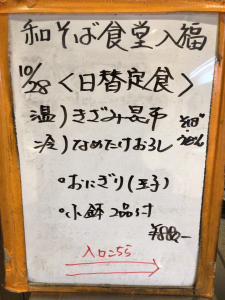 和そば食堂入福
10/28 <日替定食>
温)きざみ昆布
冷)なめたけおろし
・おにぎり(玉子)
・小鉢2品付
入口こちら